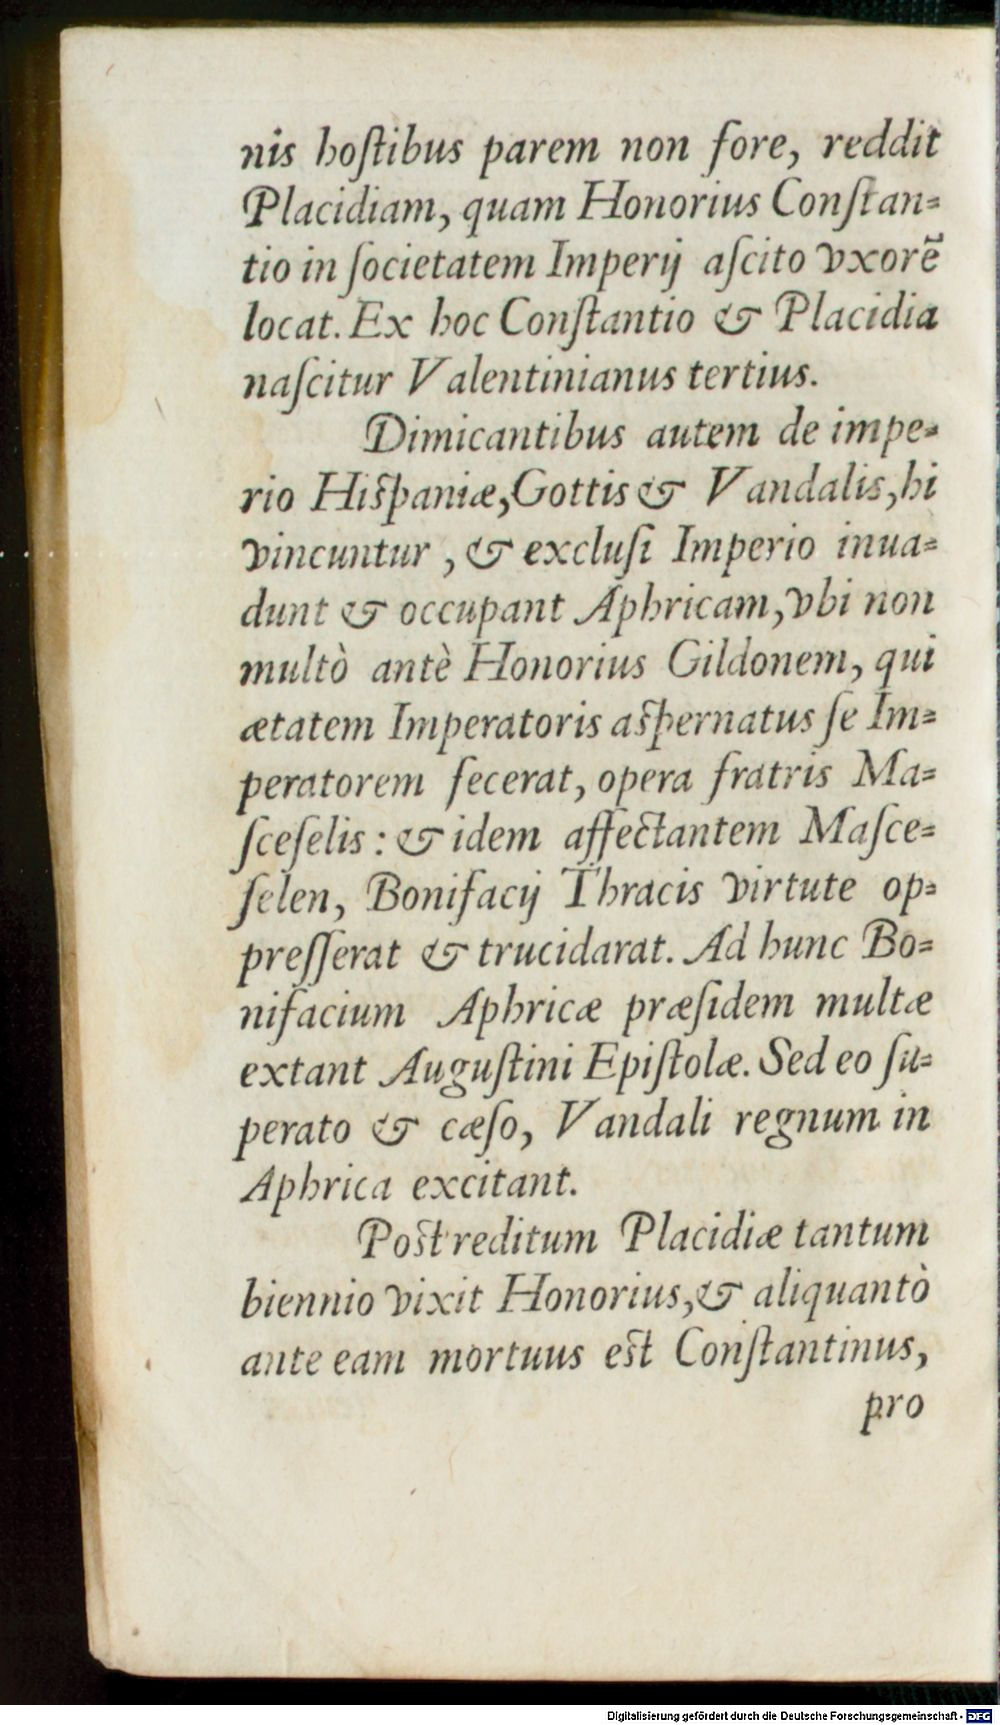 nis hoſtibus parem non fore, reddit
Placidiam, quam Honorius Conſtan-
tio in ſocietatem Imperij aſcito vxorē
locat. Ex hoc Conſtantio & Placidia
naſcitur Valentinianus tertius.
Dimicantibus autem de impe-
rio Hiſpaniæ, Gottis & Vandalis, hi
vincuntur, & excluſi Imperio inua-
dunt & occupant Aphricam, vbi non
multò antè Honorius Gildonem, qui
ætatem Imperatoris aſpernatus ſe Im-
peratorem fecerat, opera fratris Ma-
ſceſelis: & idem affectantem Maſce-
ſelen, Bonifacij Thracis virtute op-
preſſerat & trucidarat. Ad hunc Bo-
nifacium Aphricæ præſidem multæ
extant Auguſtini Epiſtolæ. Sed eo ſu-
perato & cæſo, Vandali regnum in
Aphrica excitant.
Poſt reditum Placidiæ tantum
biennio vixit Honorius, & aliquantò
ante eam mortuus eſt Conſtantinus,
pro
Digitalisierung gefördert durch die Deutsche Forschungsgemeinschaft - DFG